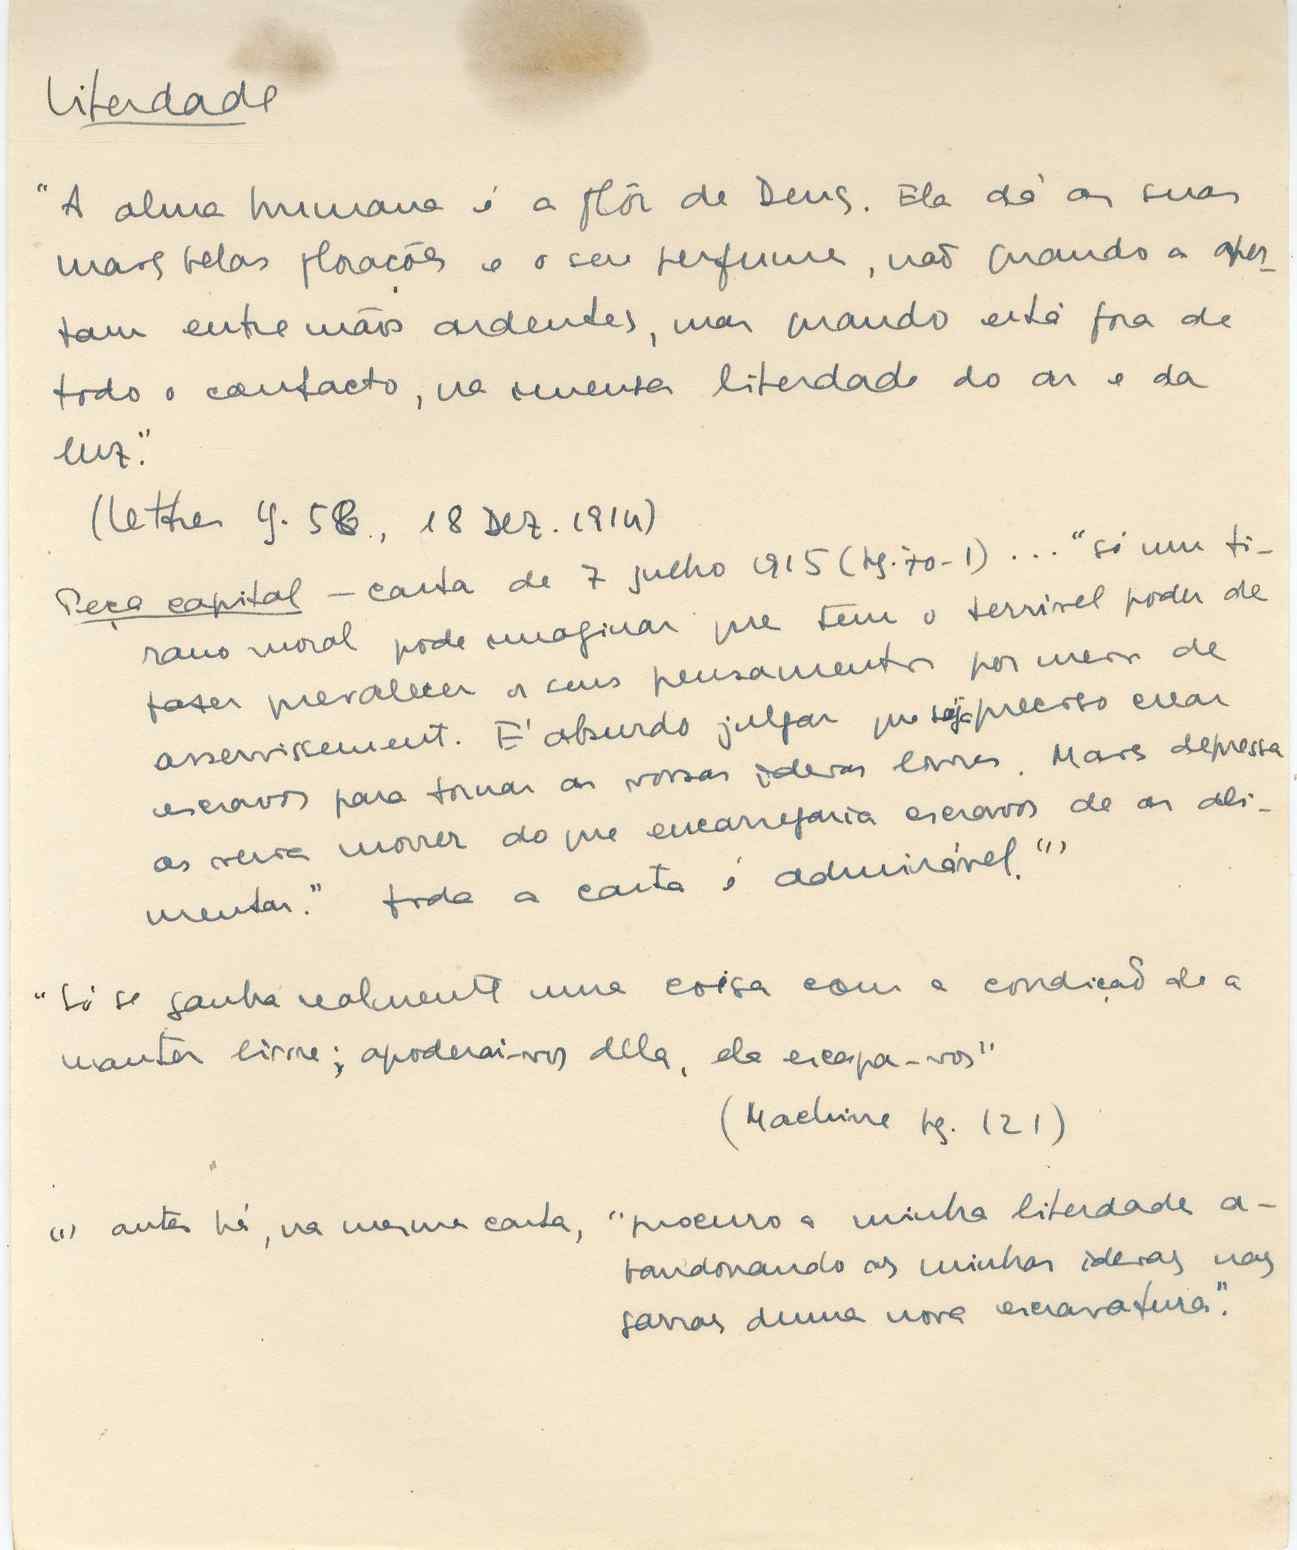 Liberdade
"A alma humana é a flôr de Deus. Ela dá as suas
mais belas florações e o seu perfume, não quando a aper-
tam entre mãos ardentes, mas quando está fora de
todo o contacto, na imensa liberdade do ar e da
luz."
(Lettres 58, 18 Dez. 1914)
Peça capital – carta de 7 julho 1915 (pg. 70-1) ... "Só um ti-
rano moral pode imaginar que tem o terrivel poder de
fazer prevalecer os seus pensamentos por meio de
asservissement. E' absurdo julgar que seja preciso crear
escravos para tornar as nossas ideias livres. Mais depressa
as veria morrer do que encarregaria escravos de as ali-
mentar." toda a carta é admirável. (1)
"Só se ganha realmente uma coisa com a condição de a
manter livre; apoderai-vos dela, ela escapa-vos"
(Machine pg. 121)
(1) antes há, na mesma carta, "procuro a minha liberdade a-
bandonando as minhas ideias nas
garras duma nova escravatura".